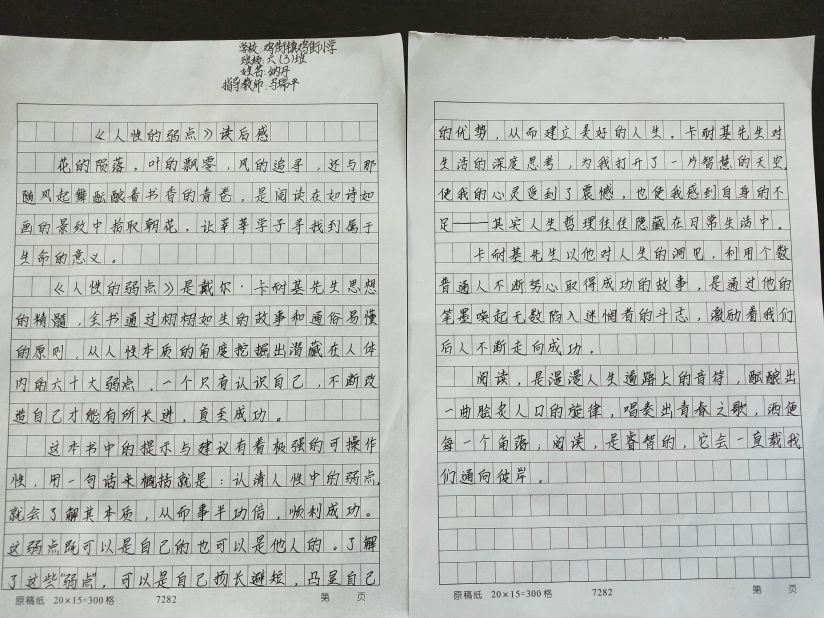 学校：鸡街镇鸡街小学
班级：六（3）班
姓名：纳丹
指导教师：马瑞平
《人性的弱点》读后感
花的陨落，叶的飘零，风的追寻，还与那
随风起舞酝酿着书香的青卷，是阅读在如诗如
画的景致中拾取朝花，让莘莘学子寻找到属于
生命的意义。
《人性的弱点》是戴尔·卡耐基先生思想
的精髓，全书通过栩栩如生的故事和通俗易懂
的原则，从人性本质的角度挖掘出潜藏在人体
内的六十大弱点．一个只有认识自己，不断改
造自己才能有所长进，直至成功。
这本书中的提示与建议有着极强的可操作
性，用一句话来概括就是：认清人性中的弱点，
就会了解其本质，从而事半功倍，顺利成功。
这弱点既可以是自己的也可以是他人的。了解
了这些“弱点”，可以是自己扬长避短，凸显自己
原稿纸 20×15=300格 7282 第 页
的优势，从而建立美好的人生。卡耐基先生对
生活的深度思考，为我打开了一片智慧的天空，
使我的心灵受到了震憾，也使我感到自身的不
足——其实人生哲理往往隐藏在日常生活中。
卡耐基先生以他对人生的洞见，利用个数
普通人不断努心取得成功的故事，是通过他的
笔墨唤起无数陷入迷惘者的斗志，激励着我们
后人不断走向成功。
阅读，是漫漫人生道路上的音符，酝酿出
一曲脍炙人口的旋律，唱奏出青春之歌，洒便
每一个角落；阅读，是睿智的，它会一直载我
们通向彼岸。
原稿纸 20×15=300格 7282 第 页